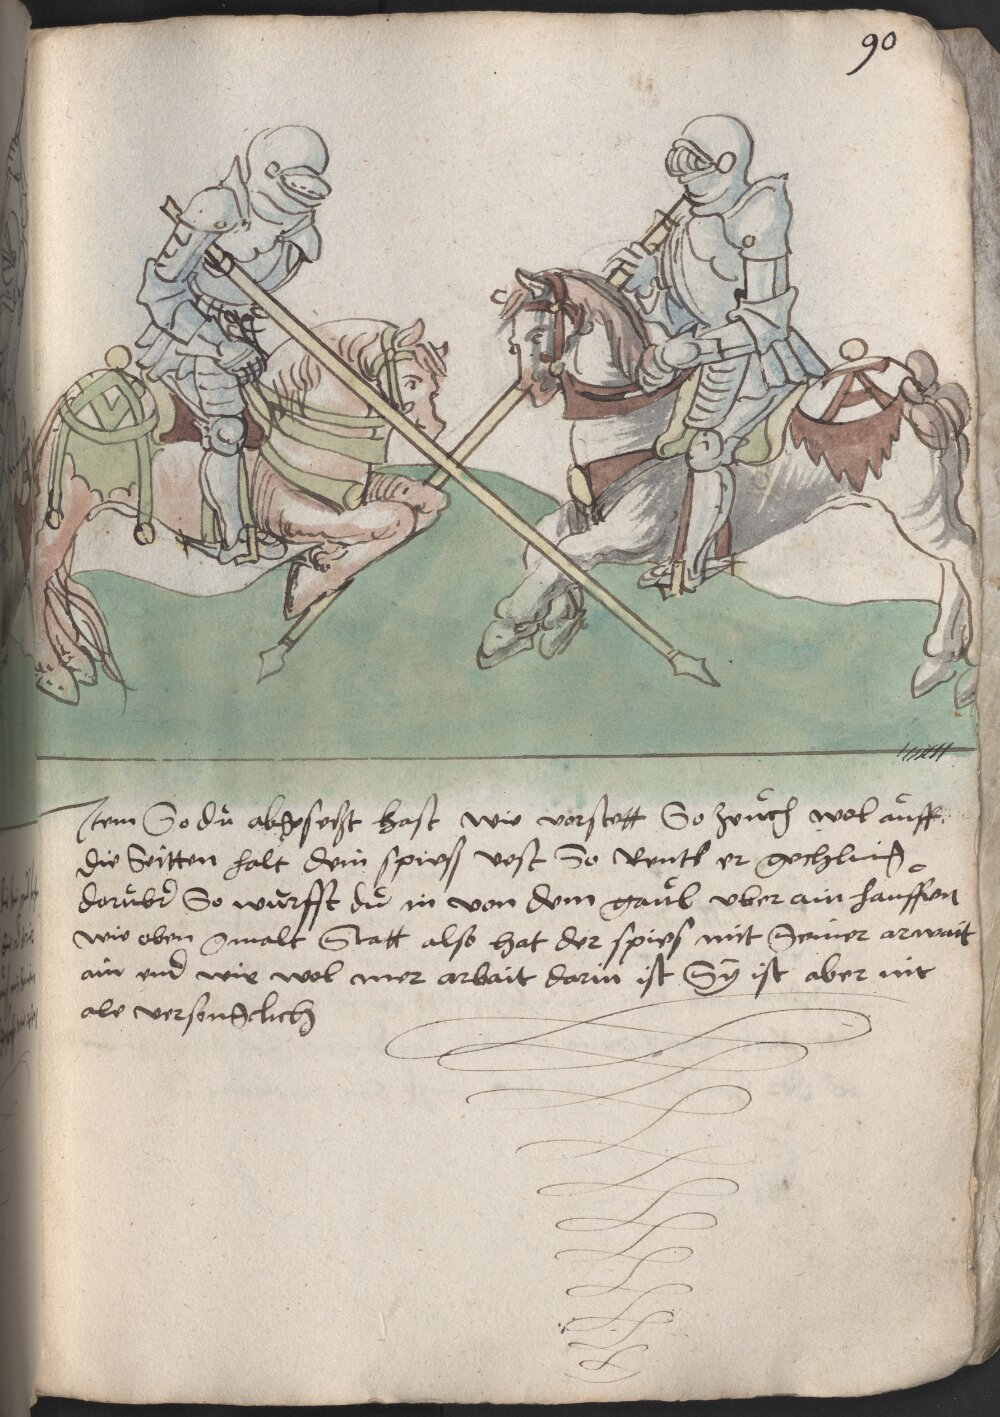 90
Item So dŭ abgesetzt hast wie vorstett So zeŭch wol aŭff
die Seitten halt dein spiess vest So Rentt er gechling
darŭber So wŭrfft dŭ in von dem gaŭl vber ain hauffen
wie oben gmalt Statt also hat der spies mit Seiner arwait
ain end wie wol mer arbait darin ist Sÿ ist aber nit
ale